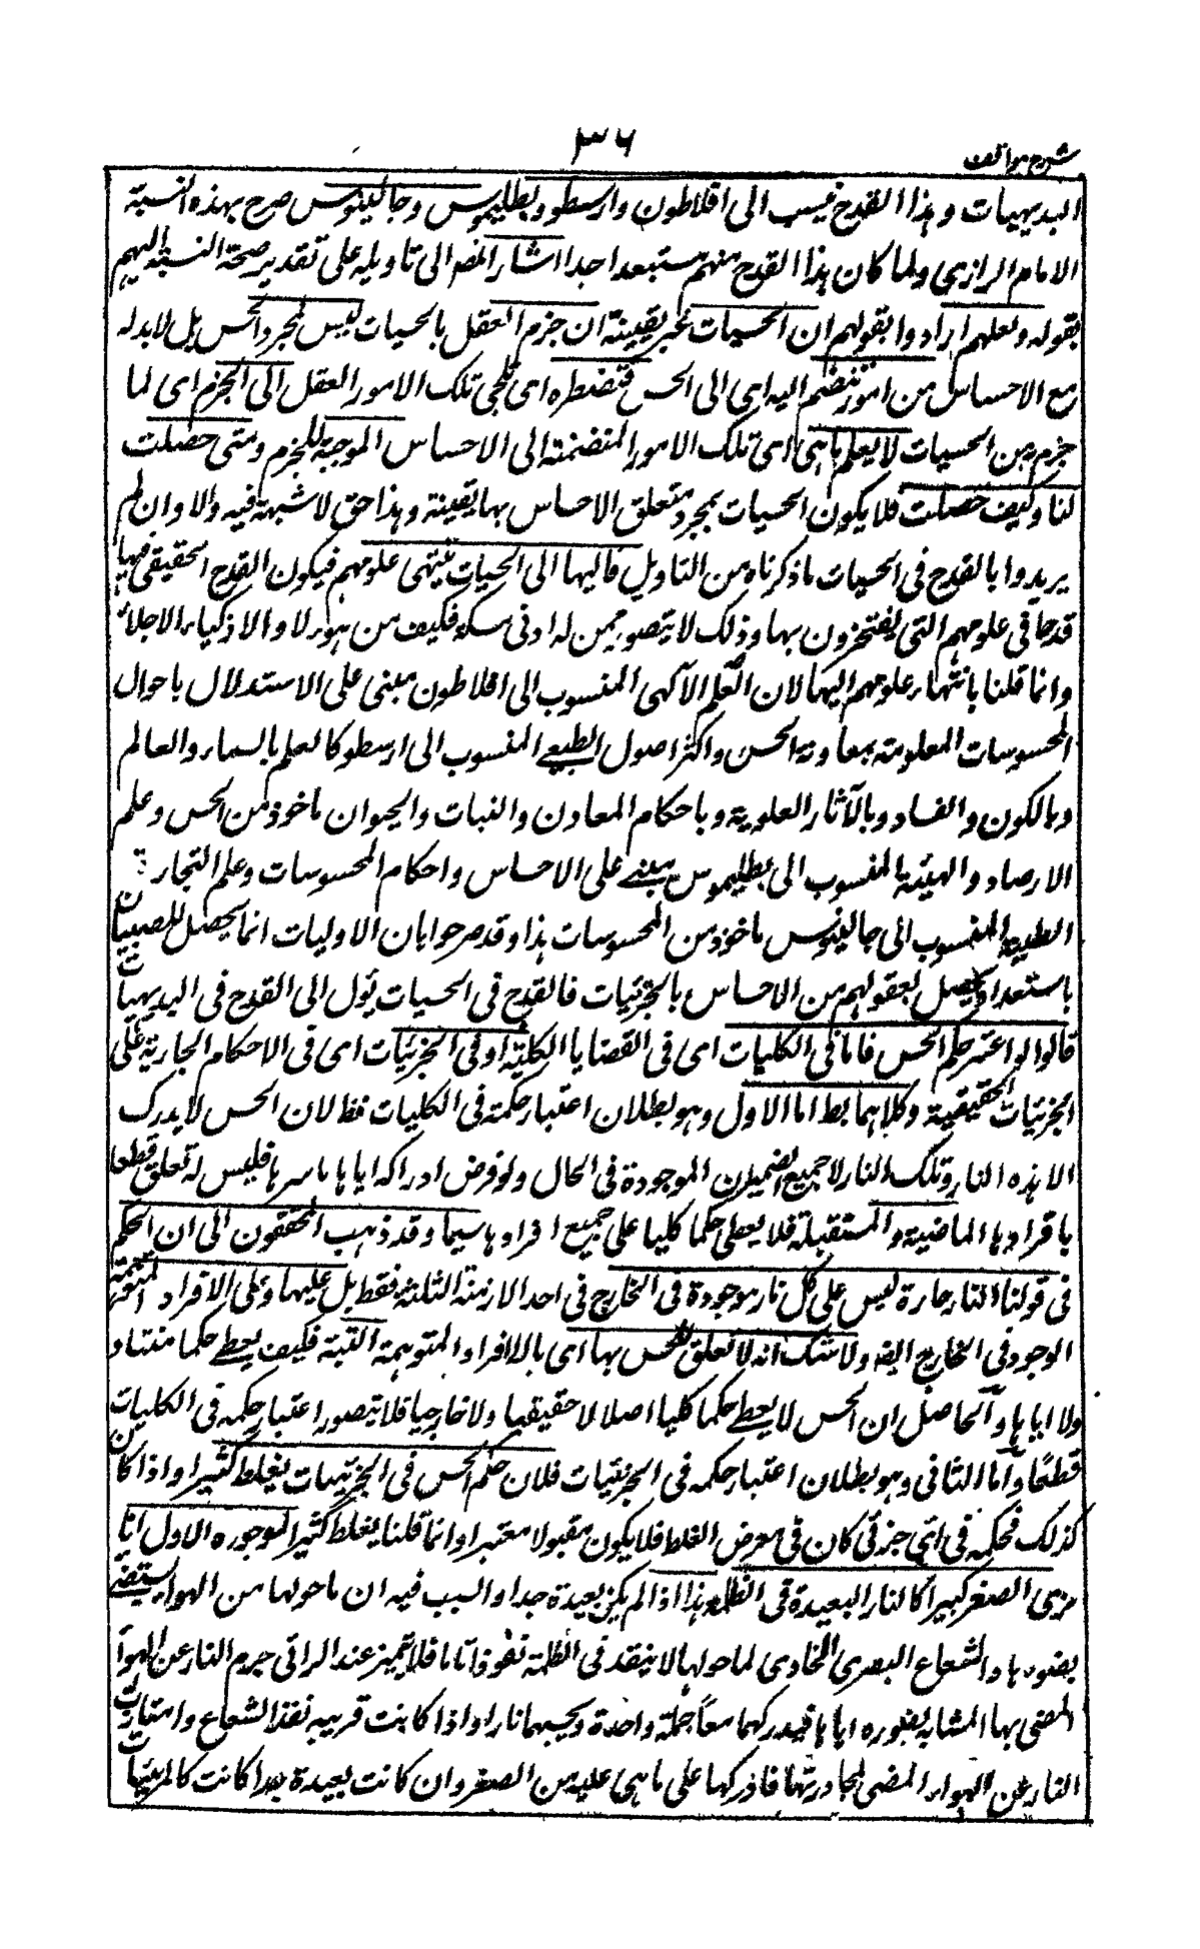 شرح مواقف
۳۶
البديهيات و هذا القدح ينسب الى افلاطون وارسطو وبطليموس وجالينوس صرح بهذه النسبة
الامام الرازي ولما كان هذا القدح منهم مستبعدا جدا اشار المص الى تاويله على تقدير صحة النسبة اليهم
بقوله ولعلهم ارادوا بقولهم ان الحسيات غير يقينية ان جزم العقل بالحسيات ليس لمجرد الحس بل لابد له
مع الاحساس من امور تنضم اليه اى الى الحس فتضطره اى تلجى تلك الامور العقل الى الجزم اى لما
جزم به من الحسيات لا يعلم ما هى اى تلك الامور المنضمة الى الاحساس الموجبة للجزم ومتى حصلت
لنا وكيف حصلت فلا يكون الحسيات بمجرد تعلق الاحساس بها يقينة وهذا حق لا شبهة فيه والا وان لم
يريدوا بالقدح فى الحسيات ما ذكرناه من التاويل فاليها الى الحسيات ينتهى علومهم فيكون القدح الحقيقى فيها
قدحا فى علومهم التى يفتخرون بها وذلك لا يتصور ممن له ادنى مسكة فكيف من هؤلاء الاذكياء الاجلاء
وانما قلنا بانتهاء علومهم اليها لان العلم الالهى المنسوب الى افلاطون مبنى على الاستدلال باحوال
المحسوسات المعلومة بمعاونة الحسن واكثر اصول الطبيعے المنسوب الى ارسطو كالعلم بالسماء والعالم
وبالكون والفساد وبالآثار العلوية وباحكام المعادن والنبات والحيوان ماخوذ من الحس وعلم
الارصاد والهيئة المنسوب الى بطليموس مبنے على الاحساس واحكام المحسوسات وعلم التجارب
الطبية المنسوب الى جالينوس ماخوذ من المحسوسات هذا وقد صرحوا بان الاوليات انما يحصل للصبيان
باستعداد يحصل لعقولهم من الاحساس بالجزئيات فالقدح فى الحسيات يؤل الى القدح فى البديهيات
قالوا لو اعتبر حكم الحس فاما فى الكليات اى فى القضايا الكلية او فى الجزئيات اى فى الاحكام الجارية على
الجزئيات الحقيقية وكلاهما بط اما الاول وهو بطلان اعتبار حكمه فى الكليات فظ لان الحس لا يدرك
الا هذه النار وتلك النار لا جميع النيران الموجودة فى الحال ولو فرض ادراكه اياها باسرها فليس له تعلق قطعا
بافرادها الماضية والمستقبلة فلا يعطى حكما كليا على جميع افرادها سيما وقد ذهب المحققون الى ان الحكم
فى قولنا النار حارة ليس على كل نار موجودة فى الخارج فى احد الازمنة الثلثة فقط بل عليها وعلى الافراد المتوهمة
الوجود فى الخارج ايضا ولا شك انه لا تعلق للحس بها اى بالافراد المتوهمة البتة فكيف يعطے حكما متناولا
اياها والحاصل ان الحس لا يعطے حكما كليا اصلا لا حقيقيا ولا خارجيا فلا يتصور اعتبار حكمه فى الكليات
قطعا واما الثانى وهو بطلان اعتبار حكمه فى الجزئيات فلان حكم الحس فى الجزئيات يغلط كثيرا واذا كان
كذلك فحكمه فى اى جزئى كان فى معرض الغلط فلا يكون مقبولا معتبرا وانما قلنا يغلط كثيرا لوجوه الاول انا
نرى الصغير كبيرا كالنار البعيدة فى الظلمة هذا اذا لم يكن بعيدة جدا والسبب فيه ان ما حولها من الهواء يستضئ
بضوءها والشعاع البصرى المحاذى لما حولها لا ينفذ فى الظلمة نفوذا تاما فلا يتميز عند الرائى جرم النار عن الهواء
المضى بها المشابه بضوره اياها فيدركهما معا جملة واحدة ويحسبهما نارا واذا كانت قريبة نفذ الشعاع وامتازت
النار عن الهواء المضى لمجاورتها فادركها على ما هى عليه من الصغر وان كانت بعيدة جدا كانت كالمرئيات